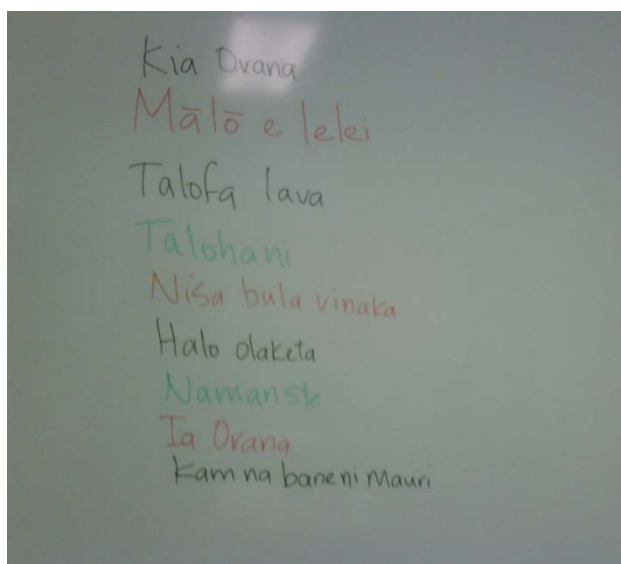 Kia Orana
Mālō e lelei
Talofa lava
Talohani
Nisa bula vinaka
Halo olaketa
Namanste
Ia Orana
Kam na bane ni Mauri